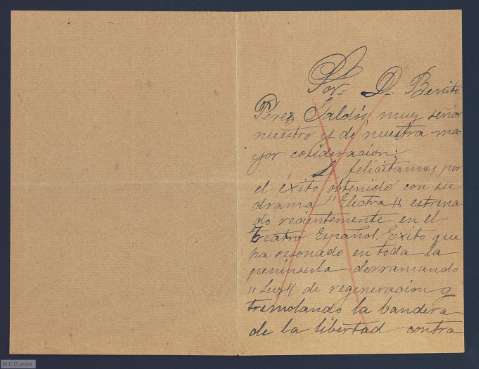 Sor. D. Benito
Perez Galdós muy señor
nuestro y de nuestra ma-
yor consideracion;
felicitamos por
el éxito obtenido con su
drama "Electra" estrena-
do recientemente en el
Teatro Español. Exito que
ha resonado en toda la
peninsula derramando
"Luz" de regeneracion y
tremolando la bandera
de la libertad contra